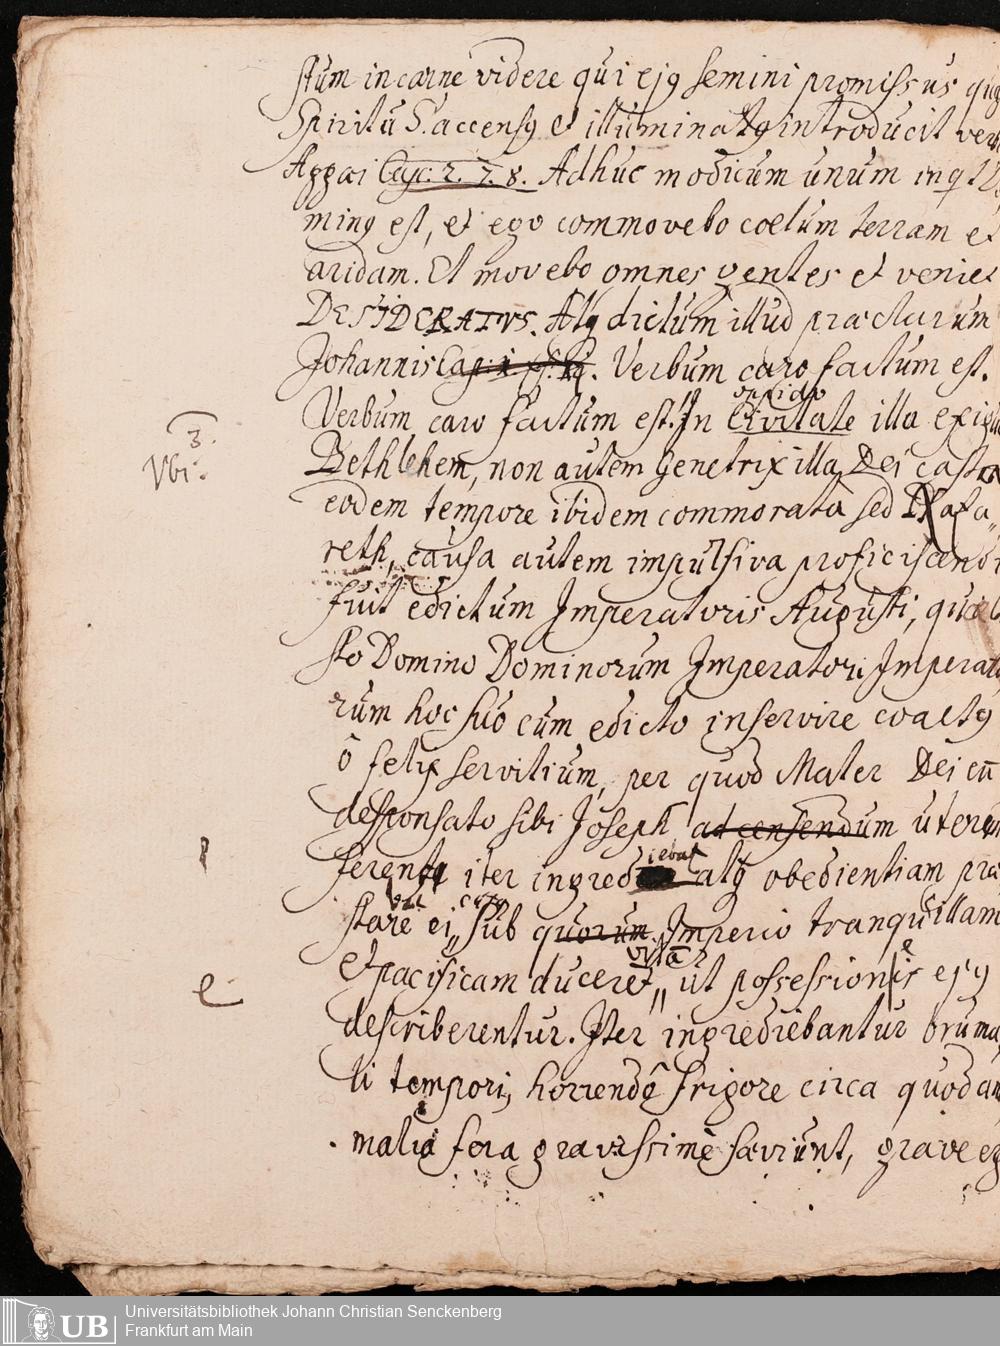 stum in carne videre qui ejq semini promissus
Spiritu S. accensq et illuminatq introducit
Aggæi Cap. 2. 7. 8. Adhuc modicum unum
minq est, et ego commovebo coelum terram et
aridam. Et movebo omnes gentes et veniet
DESIDERATVS. Atq dictum illud præclarum
Johannis Cap. 1. . Verbum caro factum est.
Verbum caro factum est. In Civitate oppido illa
3.
Ubi.
Bethlehem, non autem Genetrix illa Dei casta
eodem tempore ibidem commorata sed Naza„
reth, causa autem impulsiva proficiscendi
fuit edictum Imperatoris Augusti,
sto Domino Dominorum Imperatori
rum hoc suo cum edicto inservire coactq
ô felix servitium, per quod Mater Dei
desponsato sibi Joseph ad censendum
iter atq obedientiam præ
stare ei„ sub quorum Imperio tranquillam
et pacificam duceret„ vitā ut ejq
e
describerentur. Iter ingrediebantur bruma„
li tempori, horrendê frigore circa
malia fera gravissimè sæviunt, grave
Universitätsbibliothek Johann Christian Senckenberg
Frankfurt am Main
UB